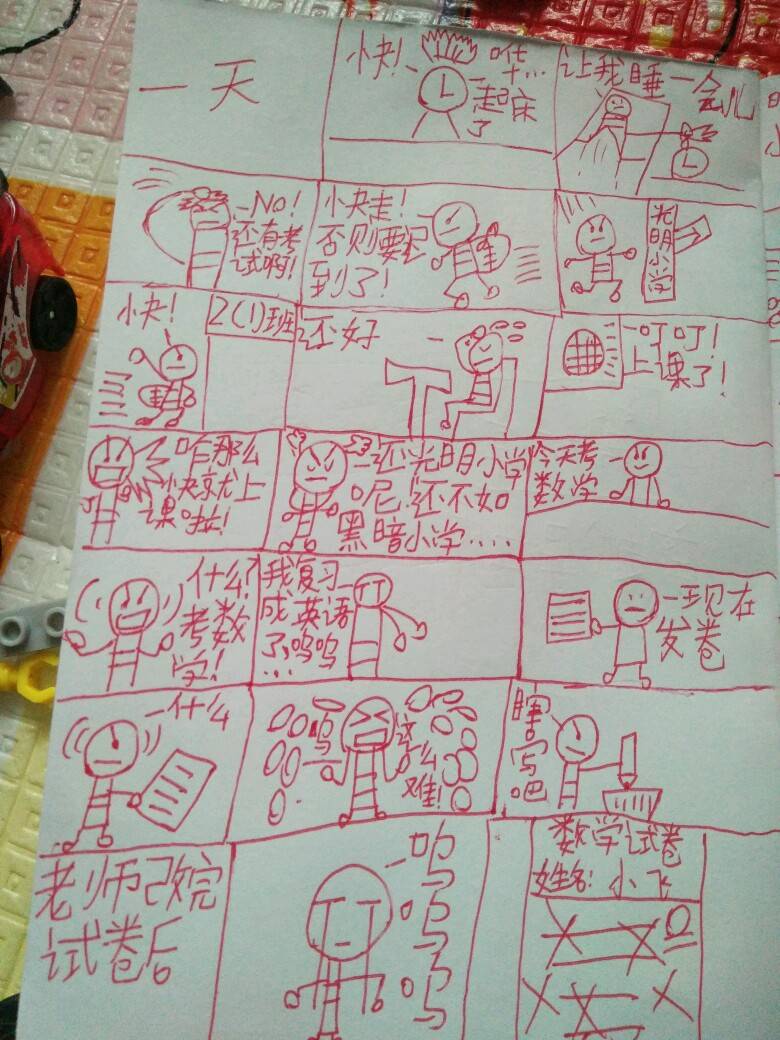 一天
快!
咋…
起床
了
让我睡一会儿
NO!
还有考
试啊!
小快走!
否则要迟
到了!
光明小学
小快!
2(1)班
还好
叮叮!
上课了!
咋那么
小快就上
课啦!
还光明小学
呢,还不如
黑暗小学....
今天考
数学
什么?
考数
学!
我复习
成英语
了,呜呜
...
现在
发卷
什么
呜
这
么
难!
瞎
写
吧
老师改完
试卷后
呜
呜
呜
呜
数学试卷
姓名:小飞
0